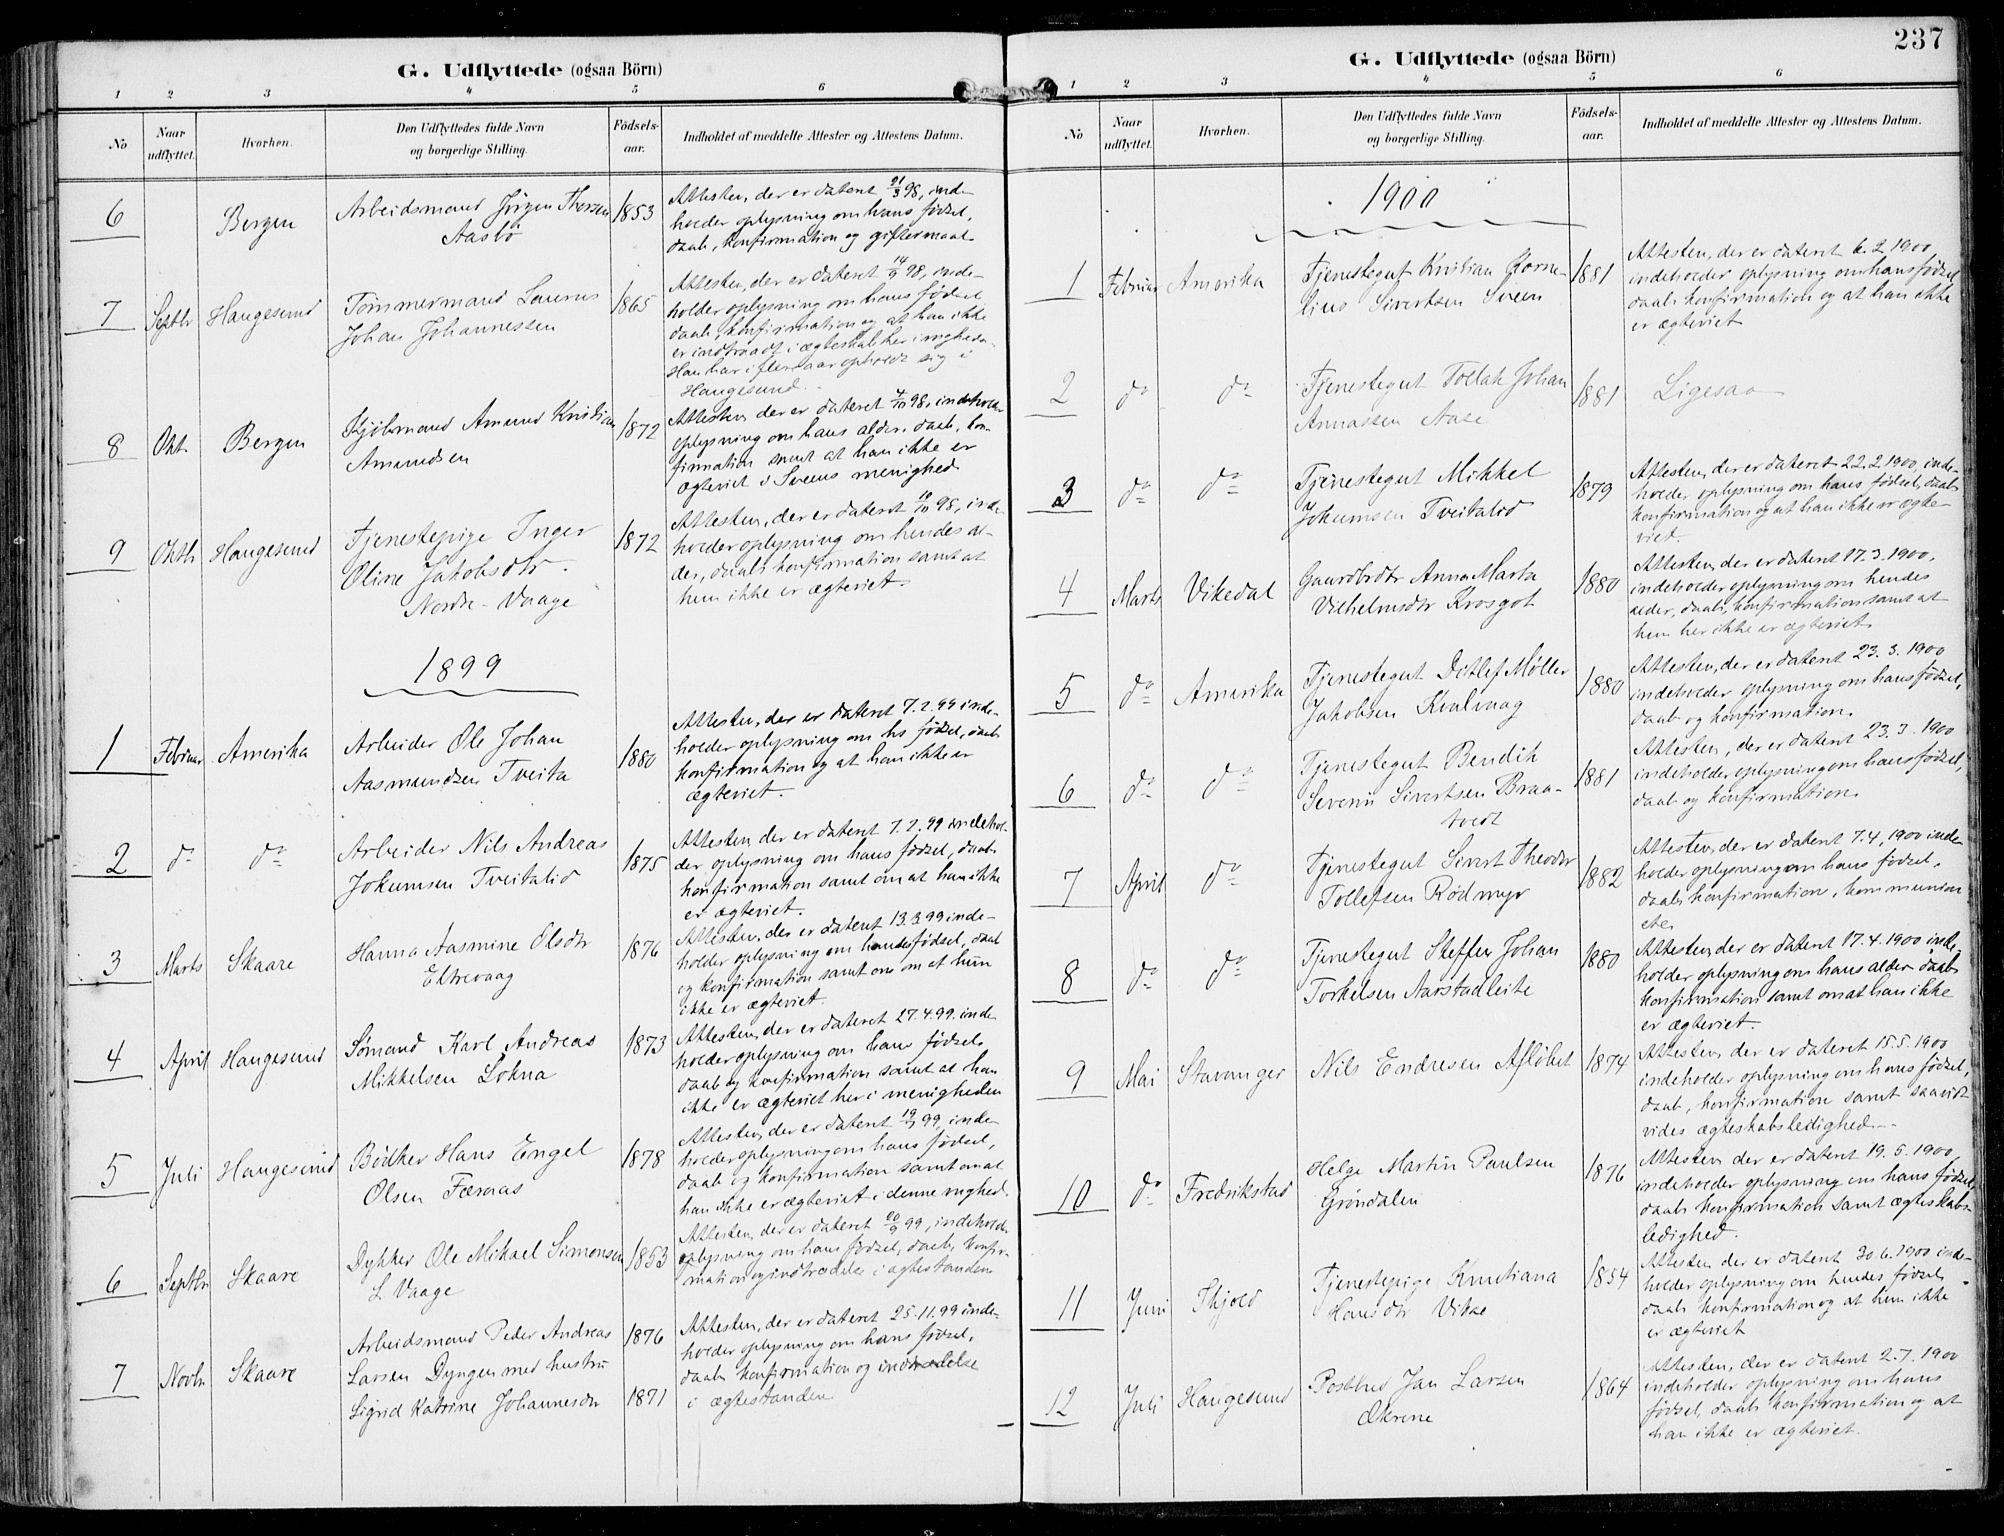 G. Udflyttede (ogsaa Börn)
1 2 3 4 5 6
No
Naar udflyttet.
Hvorhen.
Den Udflyttedes fulde Navn
og borgerlige Stilling.
Födsels-
aar.
Indholdet af meddelte Attester og Attestens Datum.
6 Bergen Arbeidsmand Jörgen Thorsen 1853
Aasbö
Attesten, der er dateret 21/3 98, inde-
holder oplysning om hans fødsel,
daab, konfirmation og giftermaal
7 Septbr Haugesund Tømmermand Laurus 1865
Johan Johannessen
Attesten, der er dateret 14/9 98, inde-
holder oplysning om hans fødsel
daab, konfirmation og at han ikke
er indtraadt i ægteskab her i mgheden
Han har i flere aar opholdt sig i
Haugesund.
8 Okt. Bergen Kjøbmand Amund Kristian 1872
Amundsen
Attesten, der er dateret 7/10 98, indeholder
oplysning om hans alder, daab, kon-
firmation samt at han ikke er
ægteviet i Sveens menighed
9 Oktb Haugesund Tjenestepige Inger 1872
Oline Jakobsdtr.
Nordre-Vaage
Attesten, der er dateret 10/10 98, inde-
holder oplysning om hendes al-
der, daab konfirmation samt at
hun ikke er ægteviet.
1899
1 Februar Amerika Arbeider Ole Johan 1880
Aasmundsen Tveita
Attesten, der er dateret 7.2.99 inde-
holder oplysning om hs fødsel, daab
konfirmation og at han ikke er
ægteviet.
2 do do Arbeider Nils Andreas 1875
Jokumsen Tveitalid
Attesten, der er dateret 7.2.99 indehol-
der oplysning om hans fødsel, daab
konfirmation samt om at han ikke
er ægteviet.
3 Marts Skaare Hanna Aasmine Olsdtr 1876
Eltrevaag
Attesten, der er dateret 13.3.99 inde-
holder oplysning om hendes fødsel, daab
og konfirmation samt om at hun
ikke er ægteviet.
4 April Haugesund Sømand Karl Andreas 1873
Mikkelsen Lokna
Attesten, der er dateret 27.4.99. inde-
holder oplysning om hans fødsel
daab og konfirmation samt at han
ikke er ægteviet her i menigheden
5 Juli Haugesund Bødker Hans Engel 1878
Olsen Færaas
Attesten, der er dateret 19/7 99, inde-
holder oplysning om hans fødsel,
daab og konfirmation samt om at
han ikke er ægteviet i denne mghed.
6 Septbr Skaare Dykker Ole Mikael Simonsen 1853
L Vaage
Attesten, der er dateret 20/9 99, indeholder
oplysning om hans fødsel, daab, konfir-
mation og indtrædelse i ægtestanden
7 Novbr. Skaare Arbeidsmand Peder Andreas 1876
Larsen Dyngen med hustru
Sigrid Katrine Johannesdtr 1871
Attesten, der er dateret 25.11.99 inde-
holder oplysning om hans fødsel,
daab konfirmation og indtrædelse
i ægtestanden
237
G. Udflyttede (ogsaa Börn)
1 2 3 4 5 6
No
Naar udflyttet.
Hvorhen.
Den Udflyttedes fulde Navn
og borgerlige Stilling.
Födsels-
aar.
Indholdet af meddelte Attester og Attestens Datum.
1900
1 Februar Amerika Tjenestegut Kristian Korne- 1881
lius Sivertsen Sveen
Attesten, der er dateret 6.2.1900
indeholder oplysning om hans fødsel
daab konfirmation og at han ikke
er ægteviet
2 do do Tjenestegut Tollak Johan 1881
Annassen Aase
Ligesaa
3 do do Tjenestegut Mikkel 1879
Jokumsen Tveitalid
Attesten, der er dateret 22.2.1900, inde-
holder oplysning om hans fødsel, daab
konfirmation og at han ikke er ægte-
viet.
4 Marts Vikedal Gaardbrdtr Anna Marta 1880
Vilhelmsdtr Krosgot
Attesten, der er dateret 17.3.1900,
indeholder oplysning om hendes
alder, daab, konfirmation samt at
hun her ikke er ægteviet.
5 do Amerika Tjenestegut Ditlef Møller 1880
Jakobsen Kvalvaag
Attesten, der er dateret 23.3.1900
indeholder oplysning om hans fødsel,
daab og konfirmation.
6 do do Tjenestegut Bendik 1881
Severin Sivertsen Braa-
tvedt
Attesten, der er dateret 23.3.1900
indeholder oplysning om hans fødsel,
daab og konfirmation.
7 April do Tjenestegut Sivert Theodor 1882
Tollefsen Rødmyr
Attesten, der er dateret 7.4.1900 inde-
holder oplysning om hans fødsel,
daab konfirmation, kommunion
etc.
8 do do Tjenestegut Steffen Johan 1880
Torkelsen Aarstadleite
Attesten, der er dateret 17.4.1900 inde-
holder oplysning om hans alder daab
konfirmation samt om at han ikke
er ægteviet.
9 Mai Stavanger Nils Endresen Afløbet 1874
Attesten, der er dateret 15.5.1900
indeholder oplysning om hans fødsel,
daab, konfirmation samt saavidt
vides ægteskabsledighed.
10 do Fredrikstad Helge Martin Paulsen 1876
Grøndalen
Attesten, der er dateret 19.5.1900,
indeholder oplysning om hans fødsel,
daab konfirmation samt ægteskabs-
ledighed.
11 Juni Skjold Tjenestepige Knutiana 1854
Hansdtr Vikse
Attesten, der er dateret 30.6.1900 inde-
holder oplysning om hendes fødsel,
daab konfirmation og at hun ikke
er ægteviet
12 Juli Haugesund Postbud Jan Larsen 1864
Økrene
Attesten, der er dateret 2.7.1900
indeholder oplysning om hans
fødsel, daab konfirmation og at
han ikke er ægteviet.